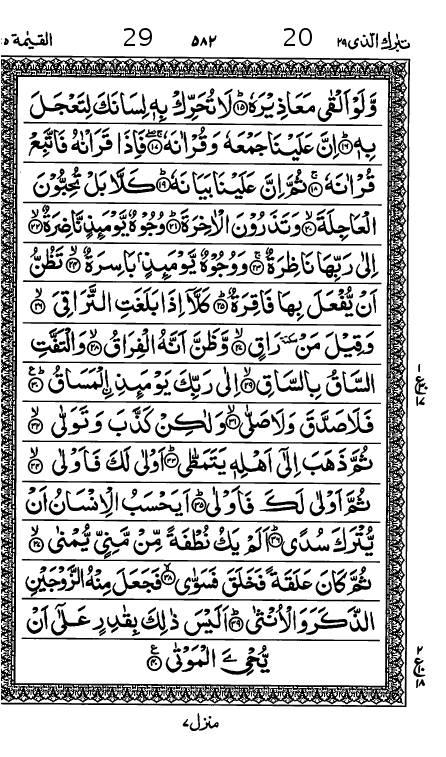 تبارك الذی ۲۹ 20 ۵۸۲ 29 القیٰمة ۷۵
وَّلَوْ اَلْقٰى مَعَاذِیْرَهٗ ۝۱۵ لَا تُحَرِّكْ بِهٖ لِسَانَكَ لِتَعْجَلَ
بِهٖ ۝۱۶ اِنَّ عَلَیْنَا جَمْعَهٗ وَ قُرْاٰنَهٗ ۝۱۷ فَاِذَا قَرَاْنٰهُ فَاتَّبِعْ
قُرْاٰنَهٗ ۝۱۸ ثُمَّ اِنَّ عَلَیْنَا بَیَانَهٗ ۝۱۹ كَلَّا بَلْ تُحِبُّوْنَ
الْعَاجِلَةَ ۝۲۰ وَ تَذَرُوْنَ الْاٰخِرَةَ ۝۲۱ وُجُوْهٌ یَّوْمَىِٕذٍ نَّاضِرَةٌ ۝۲۲
اِلٰى رَبِّهَا نَاظِرَةٌ ۝۲۳ وَ وُجُوْهٌ یَّوْمَىِٕذٍۭ بَاسِرَةٌ ۝۲۴ تَظُنُّ
اَنْ یُّفْعَلَ بِهَا فَاقِرَةٌ ۝۲۵ كَلَّاۤ اِذَا بَلَغَتِ التَّرَاقِیَ ۝۲۶
وَ قِیْلَ مَنْ ٚ سكتة رَاقٍ ۝۲۷ وَّ ظَنَّ اَنَّهُ الْفِرَاقُ ۝۲۸ وَ الْتَفَّتِ
السَّاقُ بِالسَّاقِ ۝۲۹ اِلٰى رَبِّكَ یَوْمَىِٕذِ ﹰالْمَسَاقُ ۝۳۰
فَلَا صَدَّقَ وَ لَا صَلّٰى ۝۳۱ وَ لٰكِنْ كَذَّبَ وَ تَوَلّٰى ۝۳۲
ثُمَّ ذَهَبَ اِلٰۤى اَهْلِهٖ یَتَمَطّٰى ۝۳۳ اَوْلٰى لَكَ فَاَوْلٰى ۝۳۴
ثُمَّ اَوْلٰى لَكَ فَاَوْلٰى ۝۳۵ اَیَحْسَبُ الْاِنْسَانُ اَنْ
یُّتْرَكَ سُدًى ۝۳۶ اَلَمْ یَكُ نُطْفَةً مِّنْ مَّنِیٍّ یُّمْنٰى ۝۳۷
ثُمَّ كَانَ عَلَقَةً فَخَلَقَ فَسَوّٰى ۝۳۸ فَجَعَلَ مِنْهُ الزَّوْجَیْنِ
الذَّكَرَ وَ الْاُنْثٰى ۝۳۹ اَلَیْسَ ذٰلِكَ بِقٰدِرٍ عَلٰۤى اَنْ
یُّحْیِﰯ الْمَوْتٰى ۝۴۰
منزل ۷